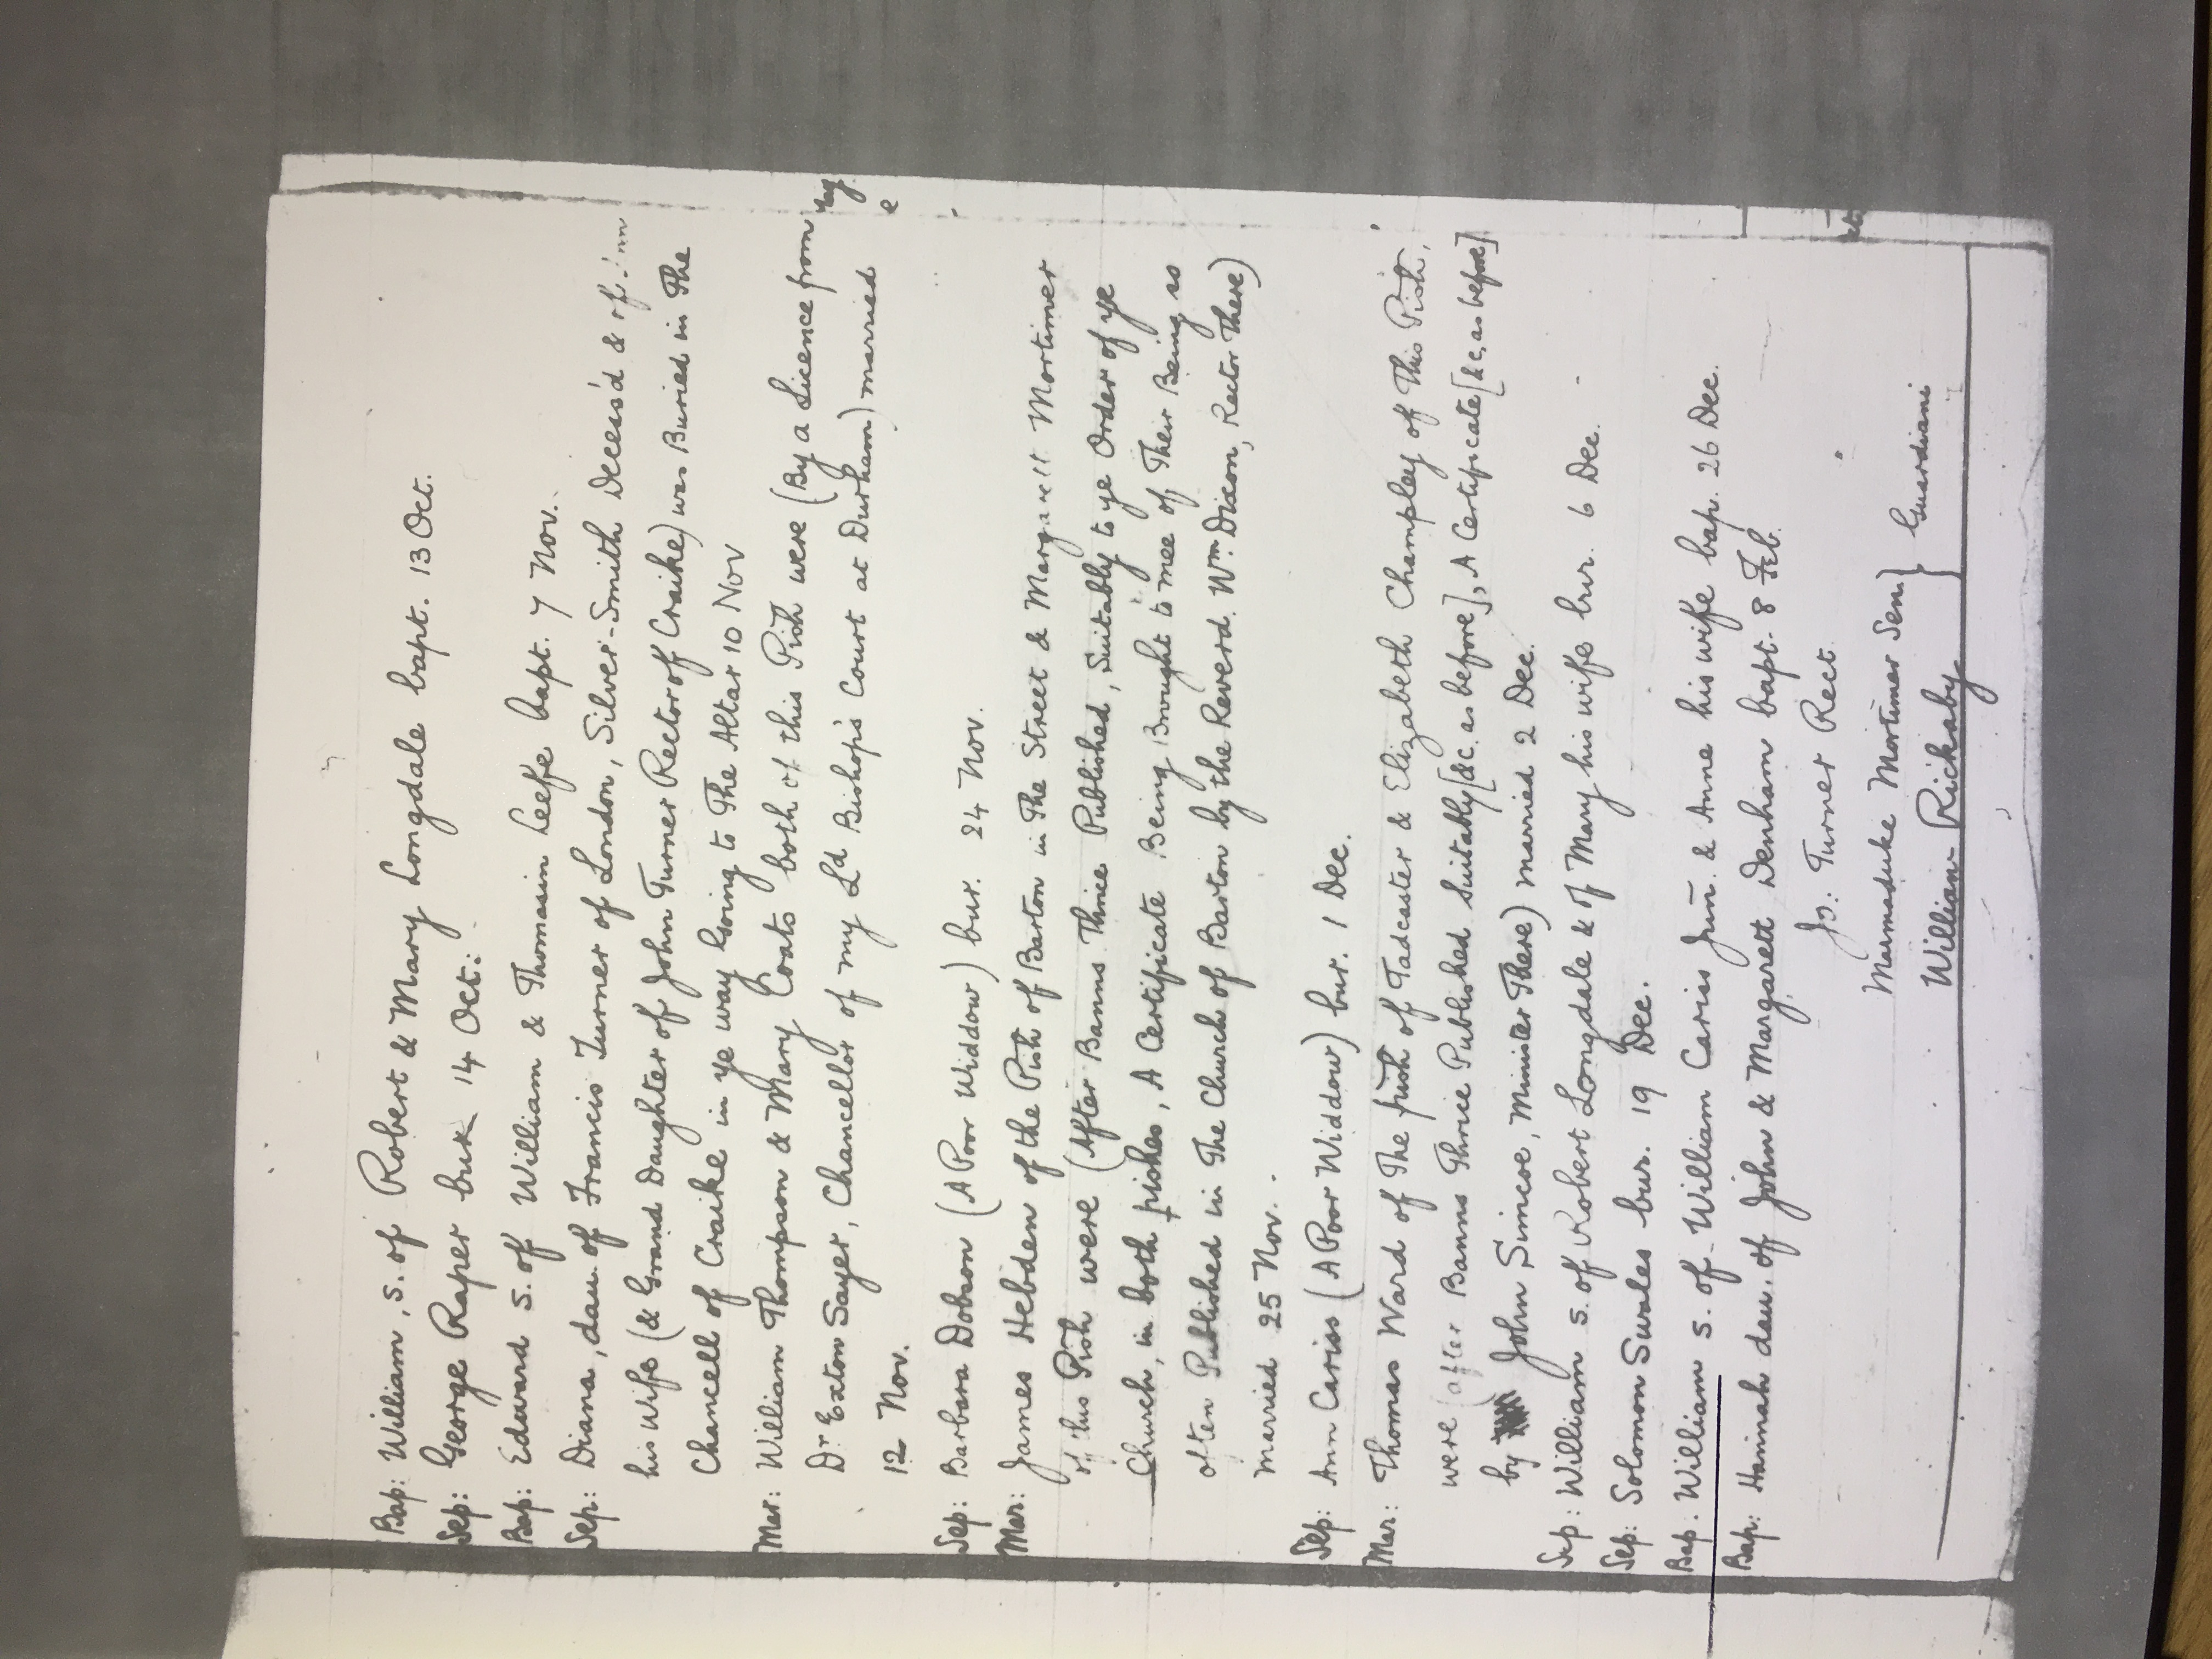 Bap: William, s. of Robert & Mary Longdale bapt. 13 Oct.
Sep: George Raper bur. 14 Oct:
Bap: Edward s. of William & Thomasin Leefe bapt. 7 Nov.
Sep: Diana, dau. of Francis Turner of London, Silver-Smith Deces'd & of
his Wife (& Grand Daughter of John Turner Rector of Craike) was Buried in The
Chancell of Craike in ye way Going to The Altar 10 Nov
Mar: William Thompson & Mary Coats both of this Pish were (By a Licence from
Dr. Exton Sayer, Chancellor of my Ld Bishop's Court at Durham) married
12 Nov.
Sep: Barbara Dobson (A Poor Widdow) bur. 24 Nov.
Mar: James Hebden of the Pish of Barton in The Street & Margarett Mortimer
of this Pish were (After Banns Thrice Published, Suitably to ye Order of ye
Church, in both pishes, A Certificate Being Brought to mee of Their Being so
often Published in The Church of Barton by the Reverd. Wm. Dixon, Rector There)
married 25 Nov.
Sep: Ann Cariss (A Poor Widdow) bur. 1 Dec.
Mar: Thomas Ward of The pish of Tadcaster & Elizabeth Champley of This Pish,
were (after Banns Thrice Published Suitably [&c. as before], A Certificate [&c, as before]
by John Simcoe, Minister There) married 2 Dec.
Sep: William s. of Robert Longdale & of Mary his wife bur. 6 Dec.
Sep: Solomon Swales bur. 19 Dec.
Bap: William s. of William Cariss Jun. & Anne his wife bap. 26 Dec.
Bap: Hannah dau. of John & Margarett Denham bapt. 8 Feb.
Jo: Turner Rect.
Marmaduke Mortimer Sen }
William Rickaby } Guardiani